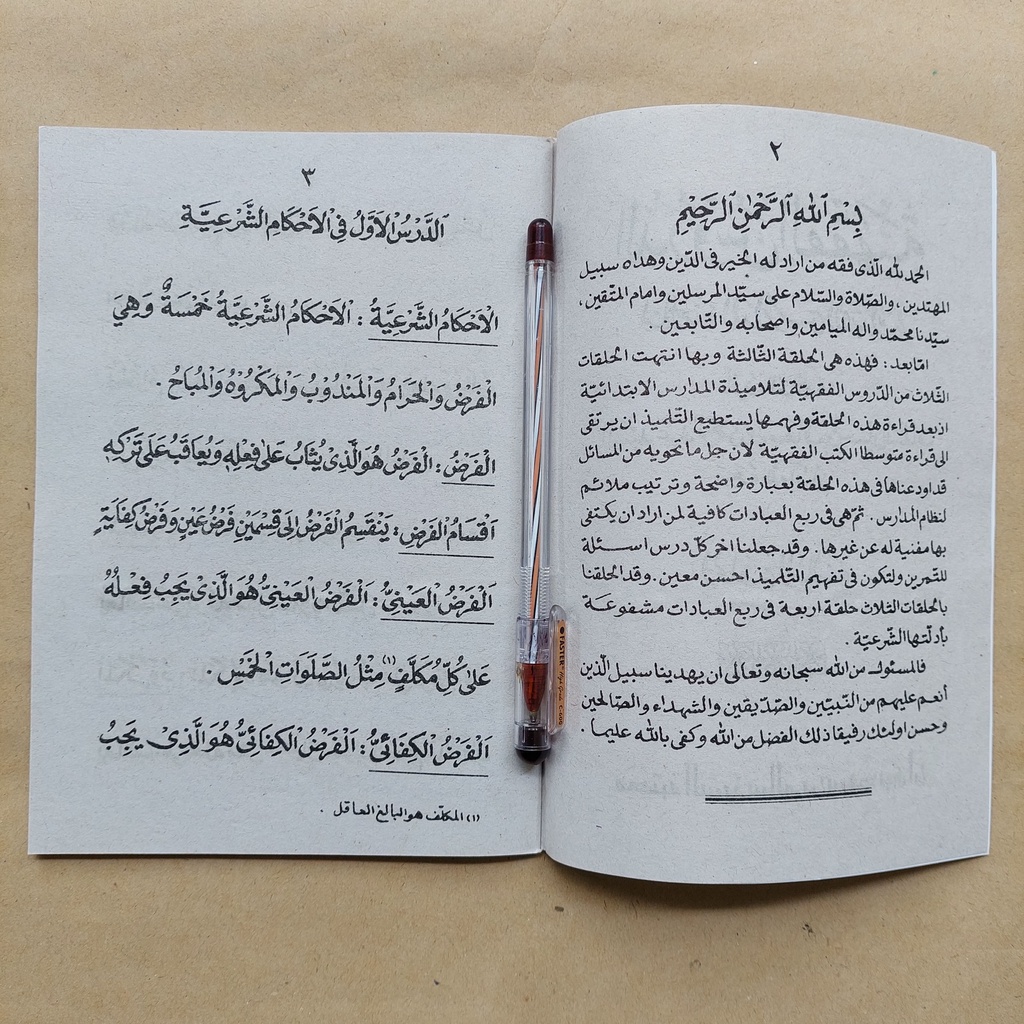 ٢
بِسْمِ اللهِ الرَّحْمٰنِ الرَّحِيْمِ
الحمد لله الّذى فقه من اراد له الخير فى الدّين وهداه سبيل
المهتدين، والصّلاة والسّلام على سيّد المرسلين وامام المتّقين،
سيّدنا محمّد واله الميامين واصحابه والتّابعين.
امّا بعد: فهذه هى الحلقة الثّالثة وبها انتهت الحلقات
الثّلاث من الدّروس الفقهيّة لتلاميذة المدارس الابتدائيّة
اذ بعد قراءة هذه الحلقة وفهمها يستطيع التّلميذ ان يرتقى
الى قراءة متوسطا الكتب الفقهيّة لان جل ما تحويه من المسائل
قد اودعناها فى هذه الحلقة بعبارة واضحة وترتيب ملائم
لنظام المدارس. ثمّ هى فى ربع العبادات كافية لمن اراد ان يكتفى
بها مغنية له عن غيرها. وقد جعلنا اخر كلّ درس اسئلة
للتمرين ولتكون فى تفهيم التّلميذ احسن معين. وقد الحقلنا
بالحلقات الثلاث حلقة اربعة فى ربع العبادات مشفوعة
بأدلّتها الشّرعيّة.
فالمسئول من الله سبحانه وتعالى ان يهدينا سبيل الّذين
أنعم عليهم من النّبيّين والصّدّيقين والشّهداء والصّالحين
وحسن اولئك رفيقا ذلك الفضل من الله وكفى بالله عليما.
٣
اَلدَّرْسُ الْاَوَّلُ فِى الْاَحْكَامِ الشَّرْعِيَّةِ
الْاَحْكَامُ الشَّرْعِيَّةُ: الْاَحْكَامُ الشَّرْعِيَّةُ خَمْسَةٌ وَهِيَ
الْفَرْضُ وَالْحَرَامُ وَالْمَنْدُوْبُ وَالْمَكْرُوْهُ وَالْمُبَاحُ.
الْفَرْضُ: الْفَرْضُ هُوَ الَّذِىْ يُثَابُ عَلٰى فِعْلِهِ وَيُعَاقَبُ عَلٰى تَرْكِهِ
اَقْسَامُ الْفَرْضِ: يَنْقَسِمُ الْفَرْضُ اِلٰى قِسْمَيْنِ فَرْضُ عَيْنٍ وَفَرْضُ كِفَايَةٍ
اَلْفَرْضُ الْعَيْنِيُّ: اَلْفَرْضُ الْعَيْنِيُّ هُوَ الَّذِىْ يَجِبُ فِعْلُهُ
عَلٰى كُلِّ مُكَلَّفٍ (١) مِثْلُ الصَّلَوَاتِ الْخَمْسِ.
اَلْفَرْضُ الْكِفَائِيُّ: اَلْفَرْضُ الْكِفَائِيُّ هُوَ الَّذِىْ يَجِبُ
(١) المكلّف هو البالغ العاقل.
FASTER